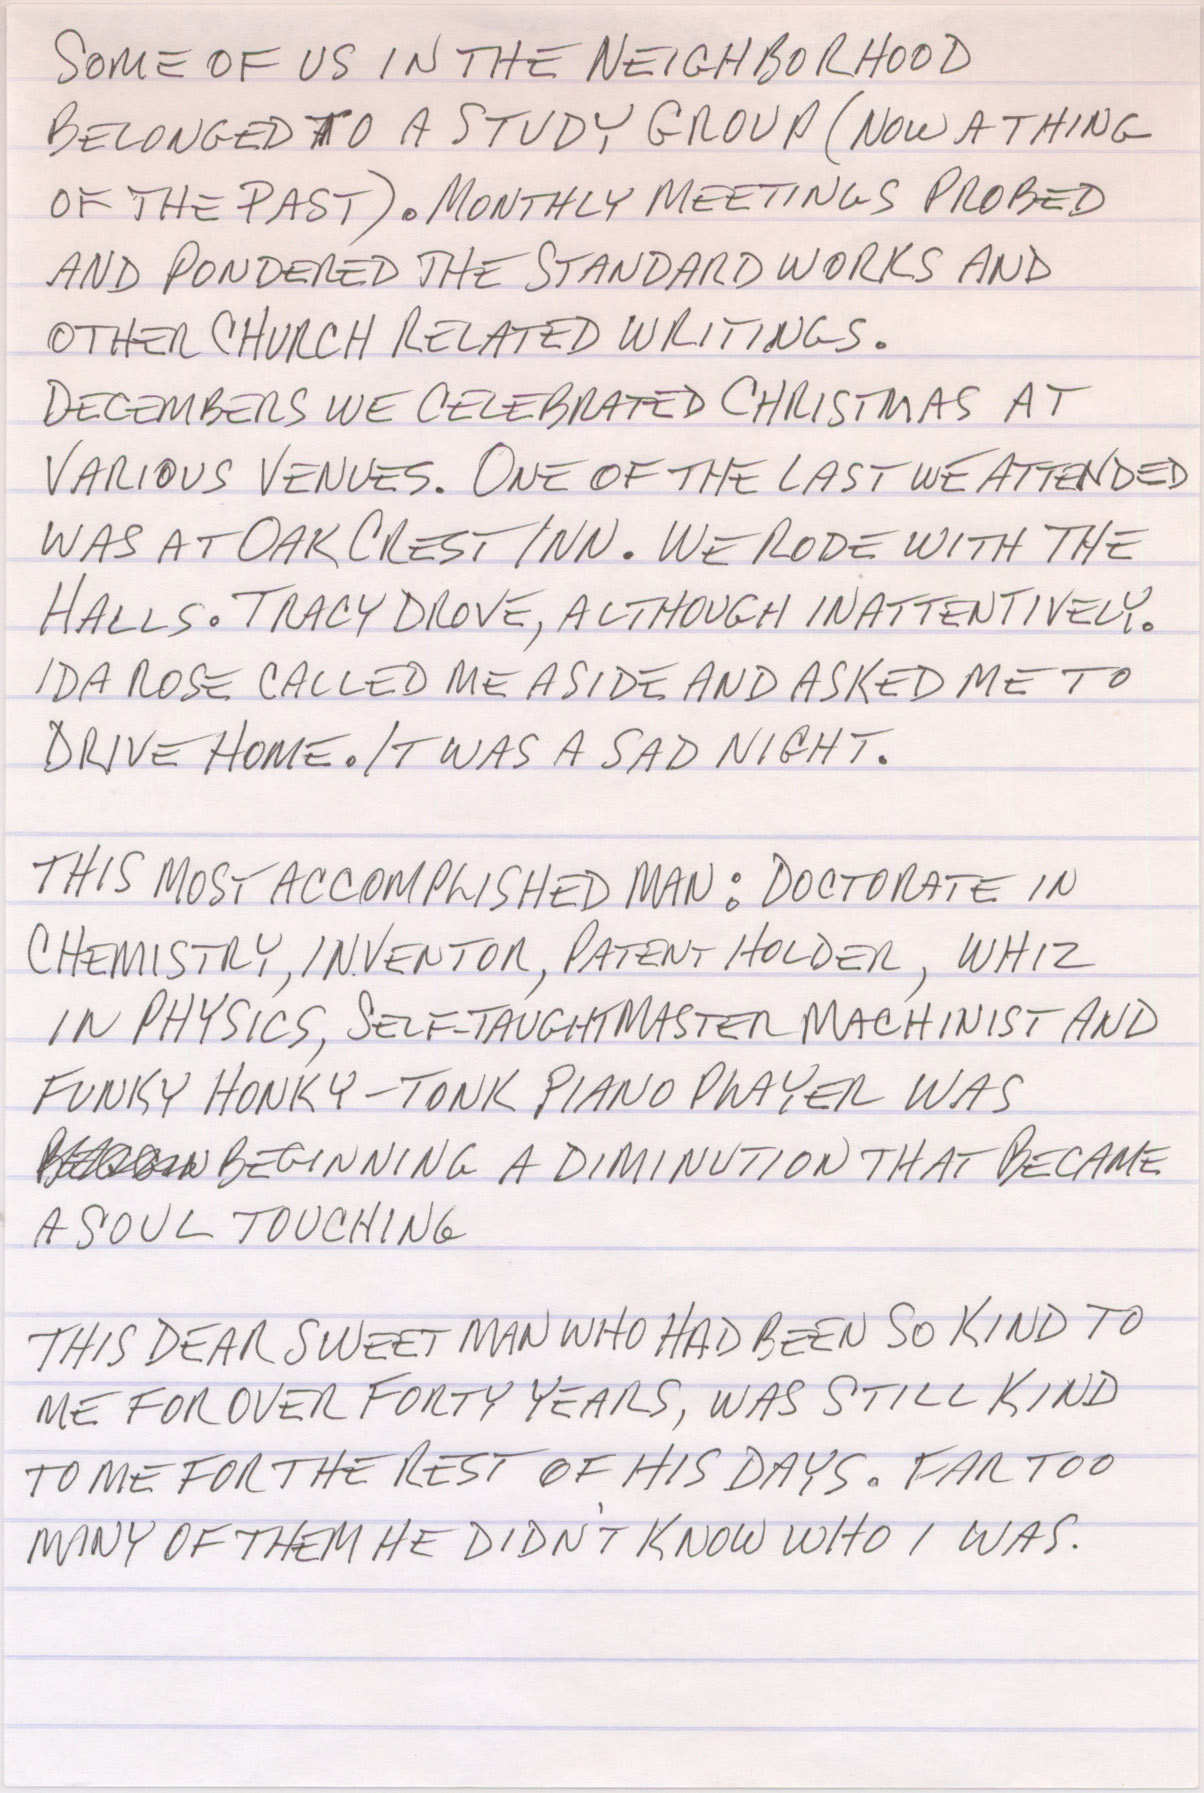 SOME OF US IN THE NEIGHBORHOOD
BELONGED TO A STUDY GROUP (NOW A THING
OF THE PAST). MONTHLY MEETINGS PROBED
AND PONDERED THE STANDARD WORKS AND
OTHER CHURCH RELATED WRITINGS.
DECEMBERS WE CELEBRATED CHRISTMAS AT
VARIOUS VENUES. ONE OF THE LAST WE ATTENDED
WAS AT OAK CREST INN. WE RODE WITH THE
HALLS. TRACY DROVE, ALTHOUGH INATTENTIVELY.
IDA ROSE CALLED ME ASIDE AND ASKED ME TO
DRIVE HOME. IT WAS A SAD NIGHT.

THIS MOST ACCOMPLISHED MAN: DOCTORATE IN
CHEMISTRY, INVENTOR, PATENT HOLDER, WHIZ
IN PHYSICS, SELF-TAUGHT MASTER MACHINIST AND
FUNKY HONKY-TONK PIANO PLAYER WAS
BEGINNING A DIMINUTION THAT BECAME
A SOUL TOUCHING

THIS DEAR SWEET MAN WHO HAD BEEN SO KIND TO
ME FOR OVER FORTY YEARS, WAS STILL KIND
TO ME FOR THE REST OF HIS DAYS. FAR TOO
MANY OF THEM HE DIDN'T KNOW WHO I WAS.